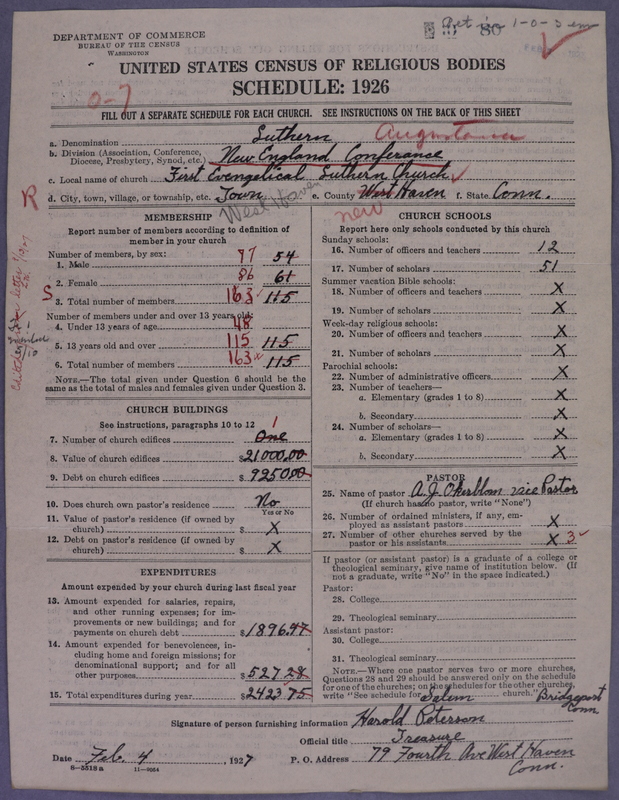 DEPARTMENT OF COMMERCE
BUREAU OF THE CENSUS
WASHINGTON
1-0-3 em
80
UNITED STATES CENSUS OF RELIGIOUS BODIES
SCHEDULE: 1926
0-7
FILL OUT A SEPARATE SCHEDULE FOR EACH CHURCH. SEE INSTRUCTIONS ON THE BACK OF THIS SHEET
a. Denomination Luthern Augustana
b. Division (Association, Conference, Diocese, Presbytery, Synod, etc.) New England Conferance
c. Local name of church First Evangelical Luthern Church
d. City, town, village, or township, etc. Town West Haven e. County West Haven new f. State Conn.
R
MEMBERSHIP
Report number of members according to definition of
member in your church
Number of members, by sex:
1. Male 77 54
2. Female 86 61
S
3. Total number of members 163 115
Number of members under and over 13 years old:
4. Under 13 years of age 48
5. 13 years old and over 115 115
6. Total number of members 163 115
NOTE.—The total given under Question 6 should be the
same as the total of males and females given under Question 3.
CHURCH BUILDINGS
See instructions, paragraphs 10 to 12
7. Number of church edifices One 1
8. Value of church edifices $21000.00
9. Debt on church edifices $9250.00
10. Does church own pastor's residence No
Yes or No
11. Value of pastor's residence (if owned by
church) $ X
12. Debt on pastor's residence (if owned by
church) $ X
EXPENDITURES
Amount expended by your church during last fiscal year
13. Amount expended for salaries, repairs,
and other running expenses; for im-
provements or new buildings; and for
payments on church debt $1896.47
14. Amount expended for benevolences, in-
cluding home and foreign missions; for
denominational support; and for all
other purposes $527.28
15. Total expenditures during year $2423.75
CHURCH SCHOOLS
Report here only schools conducted by this church
Sunday schools:
16. Number of officers and teachers 12
17. Number of scholars 51
Summer vacation Bible schools:
18. Number of officers and teachers X
19. Number of scholars X
Week-day religious schools:
20. Number of officers and teachers X
21. Number of scholars X
Parochial schools:
22. Number of administrative officers X
23. Number of teachers—
a. Elementary (grades 1 to 8) X
b. Secondary X
24. Number of scholars—
a. Elementary (grades 1 to 8) X
b. Secondary X
PASTOR
25. Name of pastor A. J. Okerblom vice Pastor
(If church has no pastor, write "None")
26. Number of ordained ministers, if any, em-
ployed as assistant pastors X
27. Number of other churches served by the
pastor or his assistants X 3
If pastor (or assistant pastor) is a graduate of a college or
theological seminary, give name of institution below. (If
not a graduate, write "No" in the space indicated.)
Pastor:
28. College
29. Theological seminary
Assistant pastor:
30. College
31. Theological seminary
NOTE.—Where one pastor serves two or more churches,
Questions 28 and 29 should be answered only on the schedule
for one of the churches; on the schedules for the other churches,
write "See schedule for Salem church." Bridgeport
Conn
Signature of person furnishing information Harold Peterson
Official title Treasure
Date Feb. 4, 1927 P. O. Address 79 Fourth Ave West Haven
Conn.
8-5518 a 11-8054